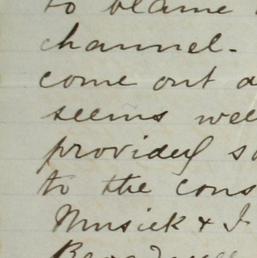 to blame
channel.
come out a
seems wee
provided so
to the cons
Musick & I